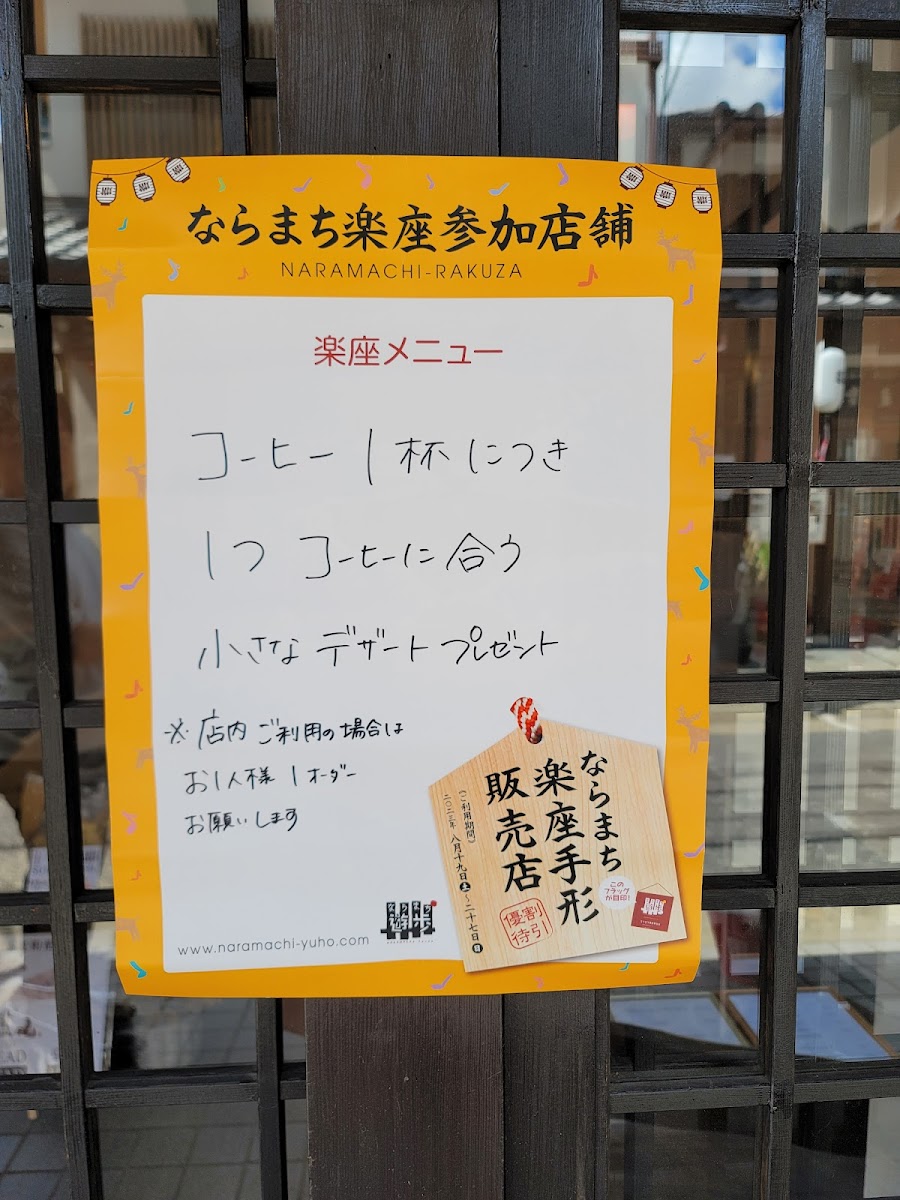 ならまち楽座参加店舗
NARAMACHI-RAKUZA
楽座メニュー
コーヒー 1杯につき
1つ コーヒーに合う
小さな デザート プレゼント
※店内 ご利用の場合は
お1人様 1オーダー
お願いします
ならまち
楽座手形
販売店
(ご利用期間)
二〇二三年 八月十九日土~二十七日日
割引
優待
この
フラッグ
が目印!
www.naramachi-yuho.com
ならまち
遊歩